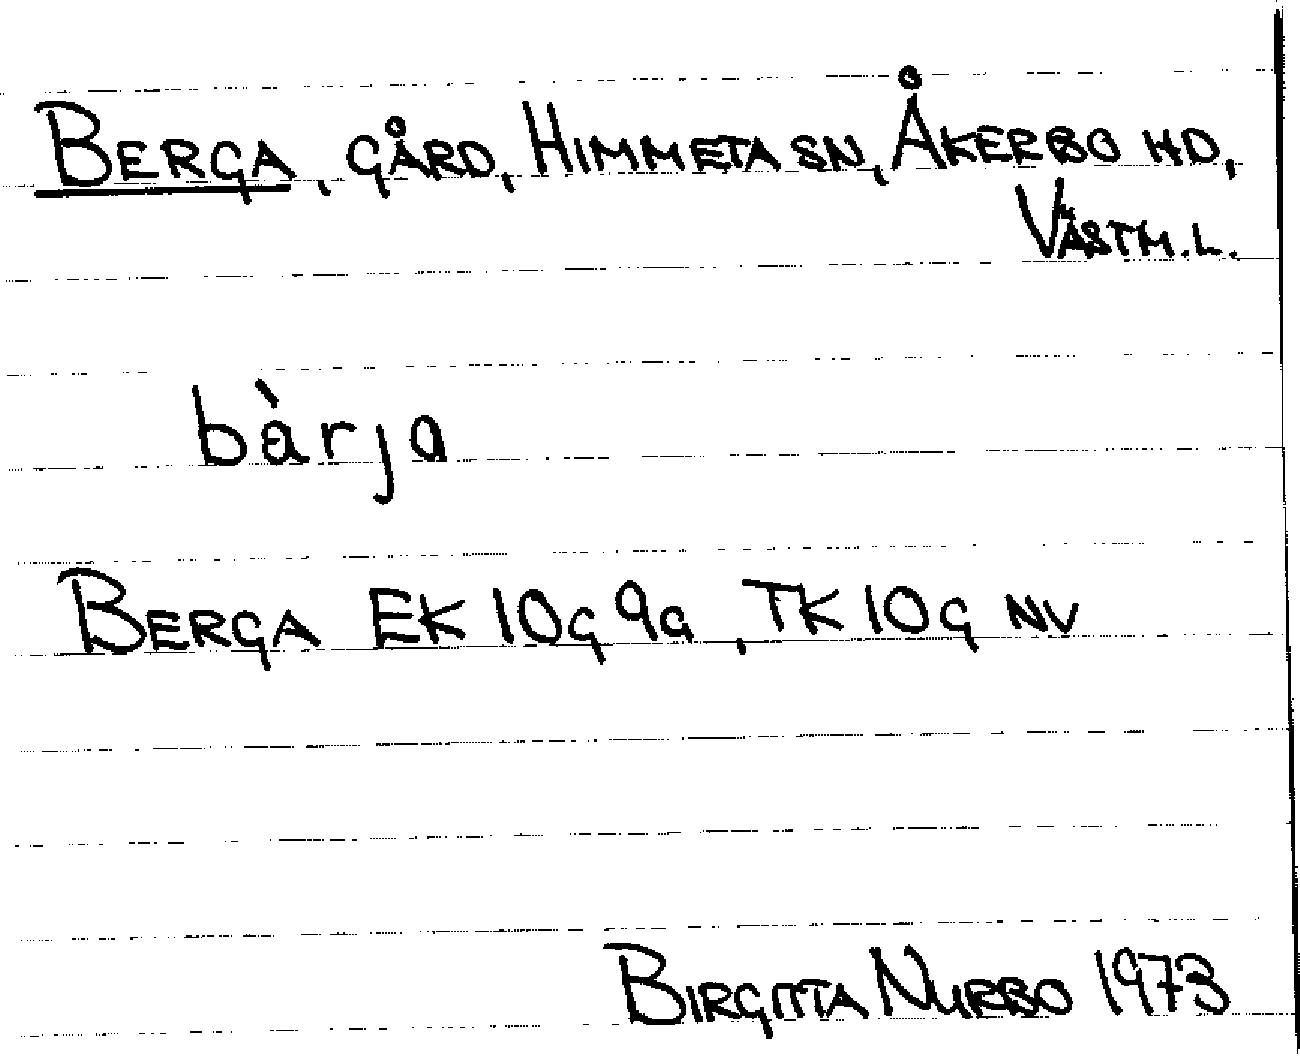 BERGA, GÅRD, HIMMETA SN, ÅKERBO HD,
VÄSTM.L.
bàrja
BERGA EK 10G 9a, TK 10G NV
BIRGITTA NURBO 1973